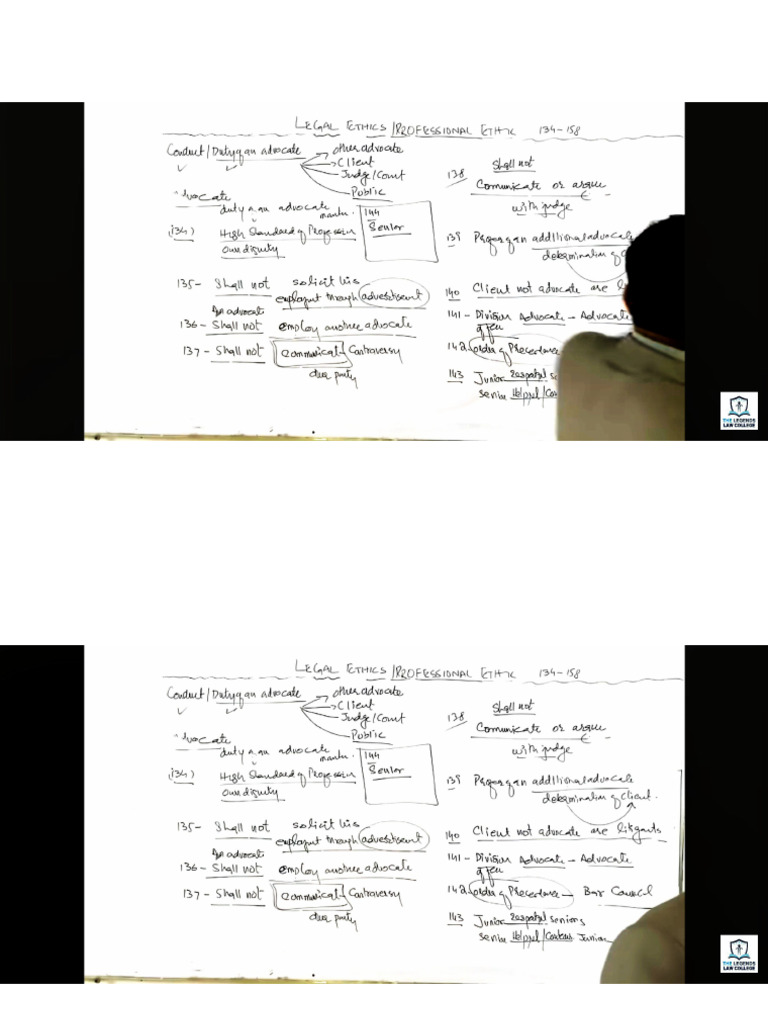 LEGAL ETHICS /PROFESSIONAL ETHIC 134-158
Conduct/Duty of an advocate
other advocate
Client
Judge/Court
Public
duty a an advocate
(134) High Standard of Profession
Own dignity
144
Senior
135- Shall not solicit his
employment through advertisement
136- Shall not employ another advocate
137- Shall not Communicat Controversy
138 Shall not
Communicate or argue
with judge
139 additional advocate
determination of
140 Client not advocate are
141- Division Advocate - Advocate
142 order of Precedence
143 Junior
senior
THE LEGENDS
LAW COLLEGE
LEGAL ETHICS /PROFESSIONAL ETHIC 134-158
Conduct/Duty of an advocate
other advocate
Client
Judge/Court
Public
duty a an advocate
(134) High Standard of Profession
Own dignity
144
Senior
135- Shall not solicit his
employment through advertisement
136- Shall not employ another advocate
137- Shall not Communicat Controversy
138 Shall not
Communicate or argue
with judge
139 additional advocate
determination of Client.
140 Client not advocate are litigants
141- Division Advocate - Advocate
142 order of Precedence - Bar Council
143 Junior seniors
senior Junior
THE LEGENDS
LAW COLLEGE